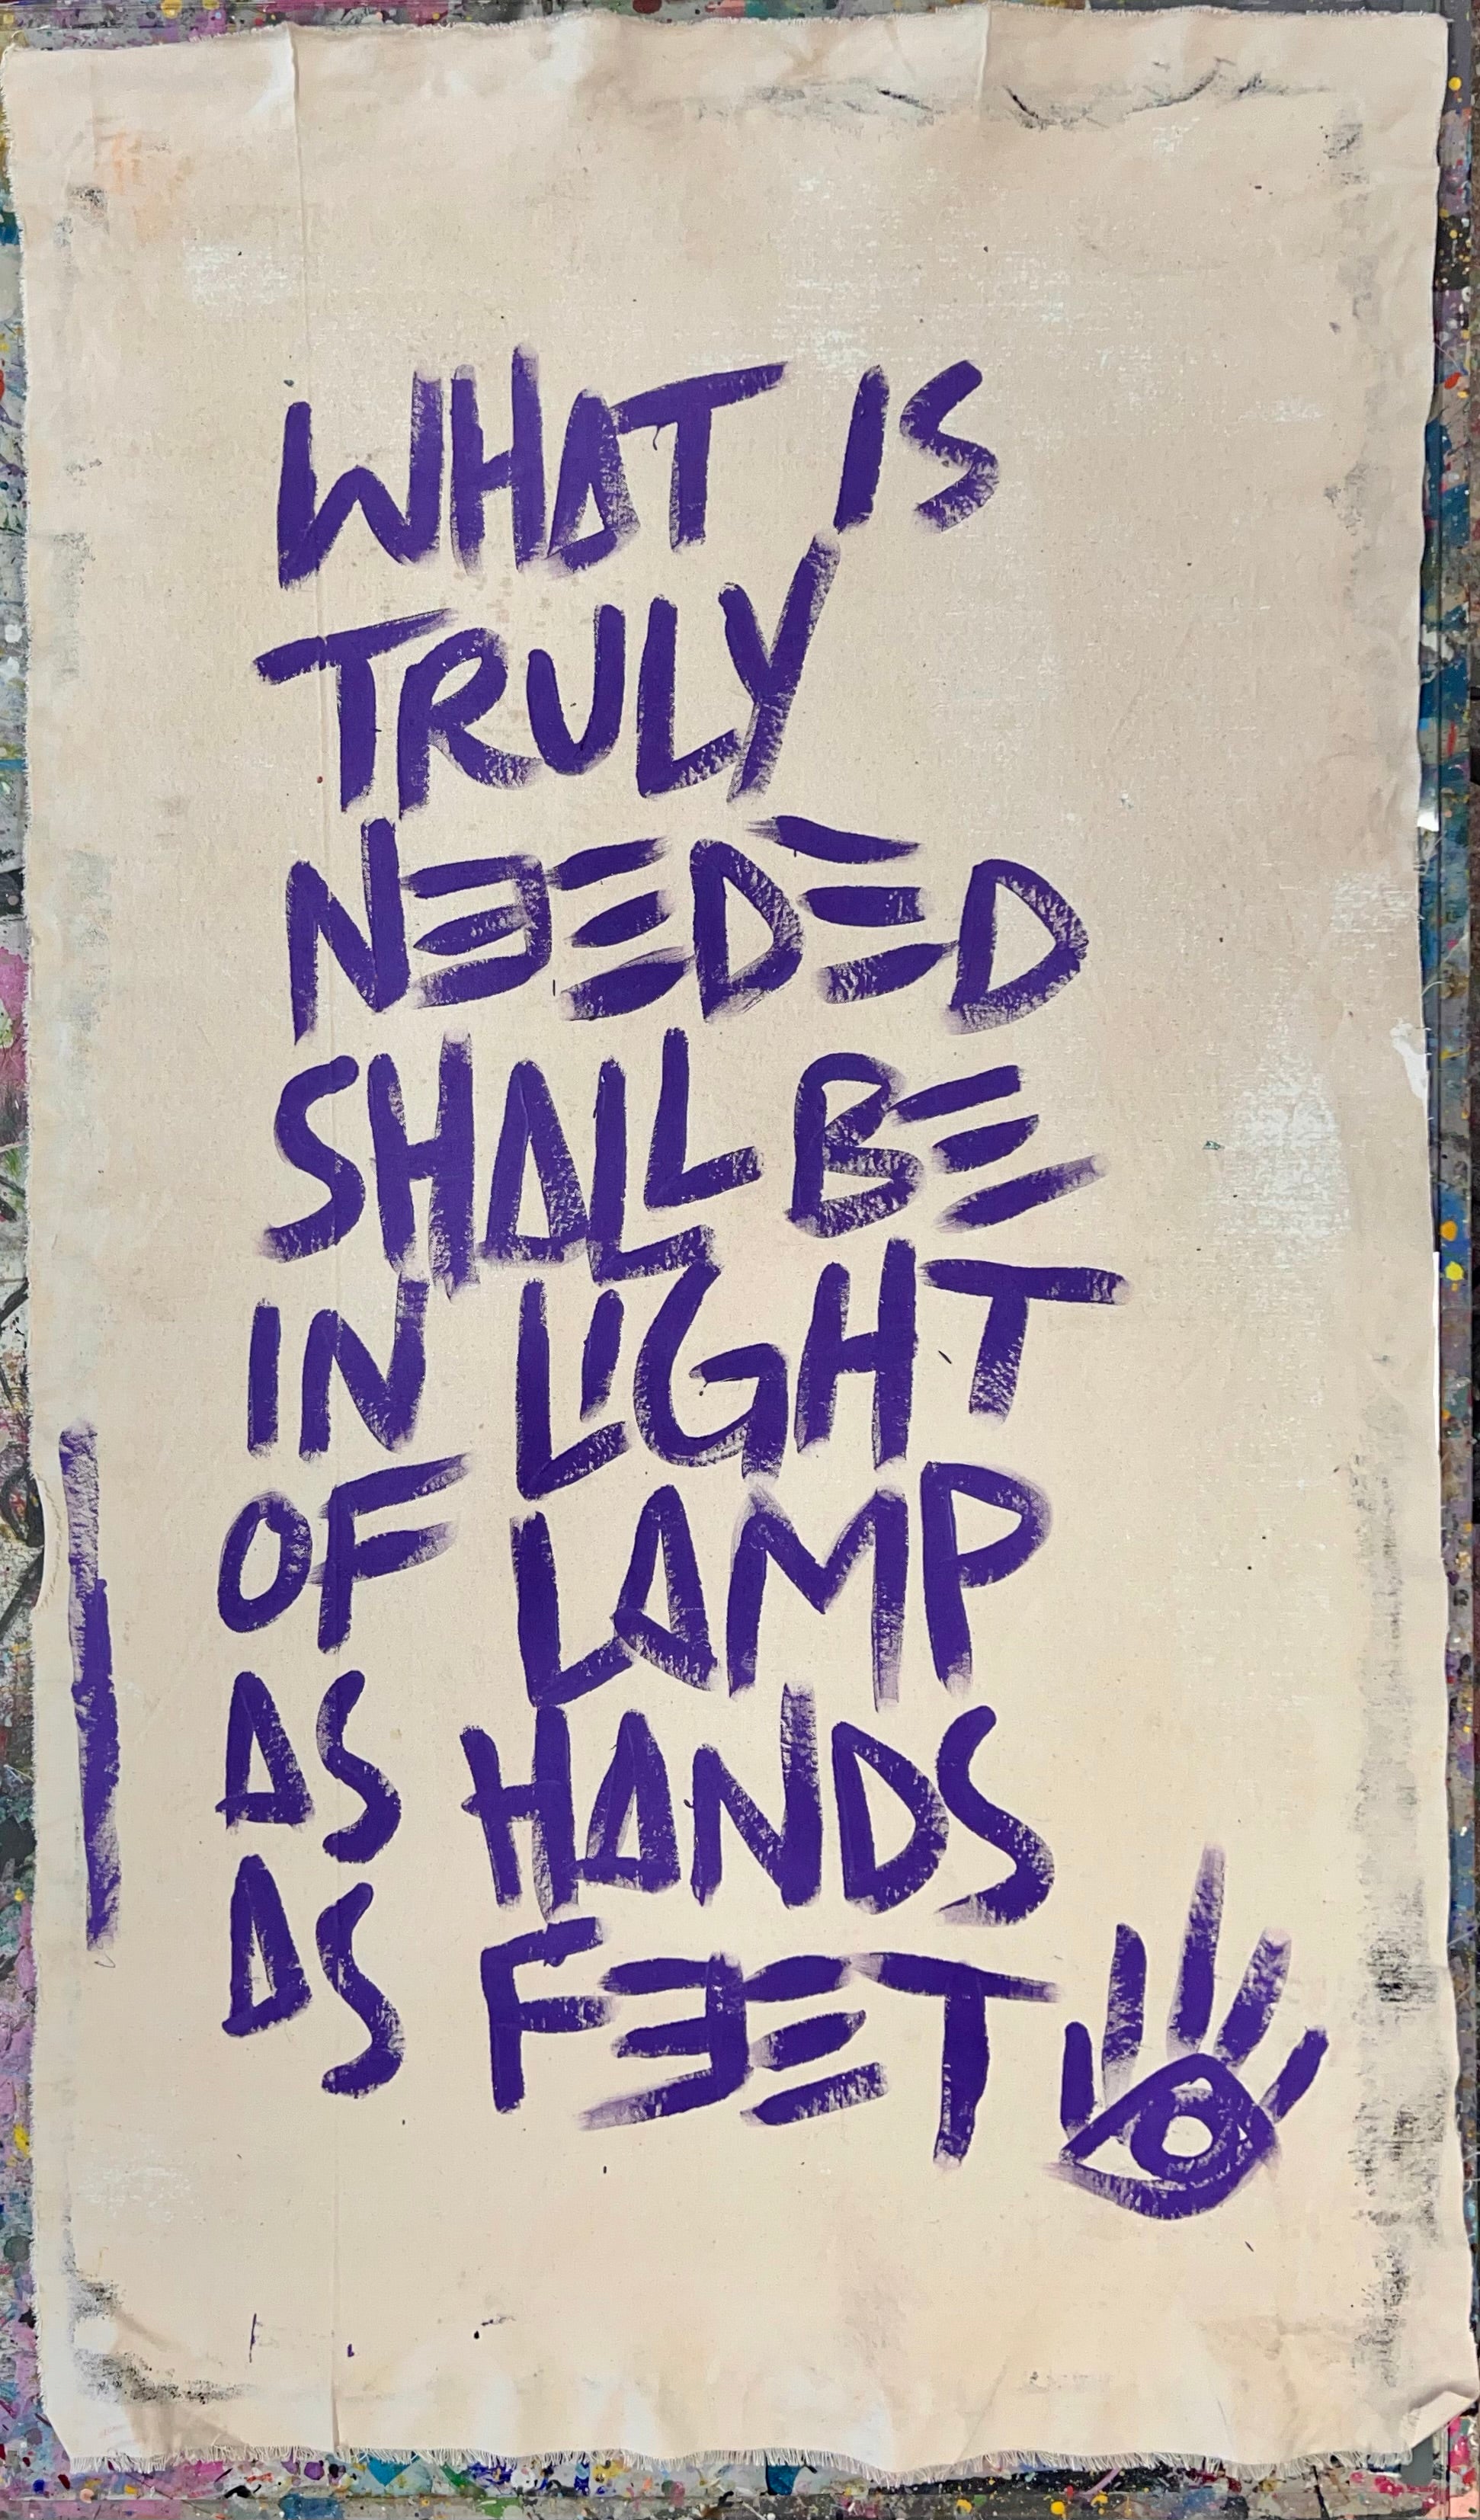 WHAT IS
TRULY
NEEDED
SHALL BE
IN LIGHT
OF LAMP
AS HANDS
AS FEET